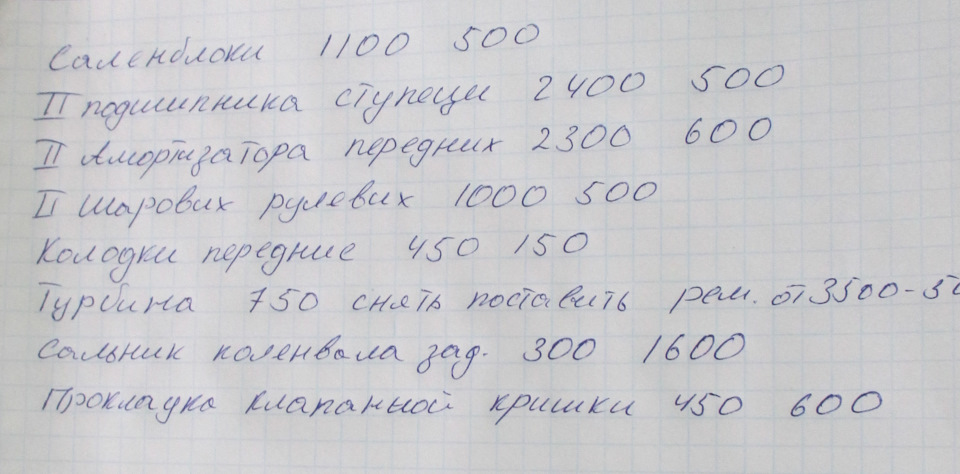 Саленблоки 1100 500
II подшипника ступеци 2400 500
II Амортизатора передних 2300 600
II шарових рулевих 1000 500
Колодки передние 450 150
Турбина 750 снять поставить рем. от 3500-50
Сальник коленвала зад. 300 1600
Прокладка клапанной кришки 450 600